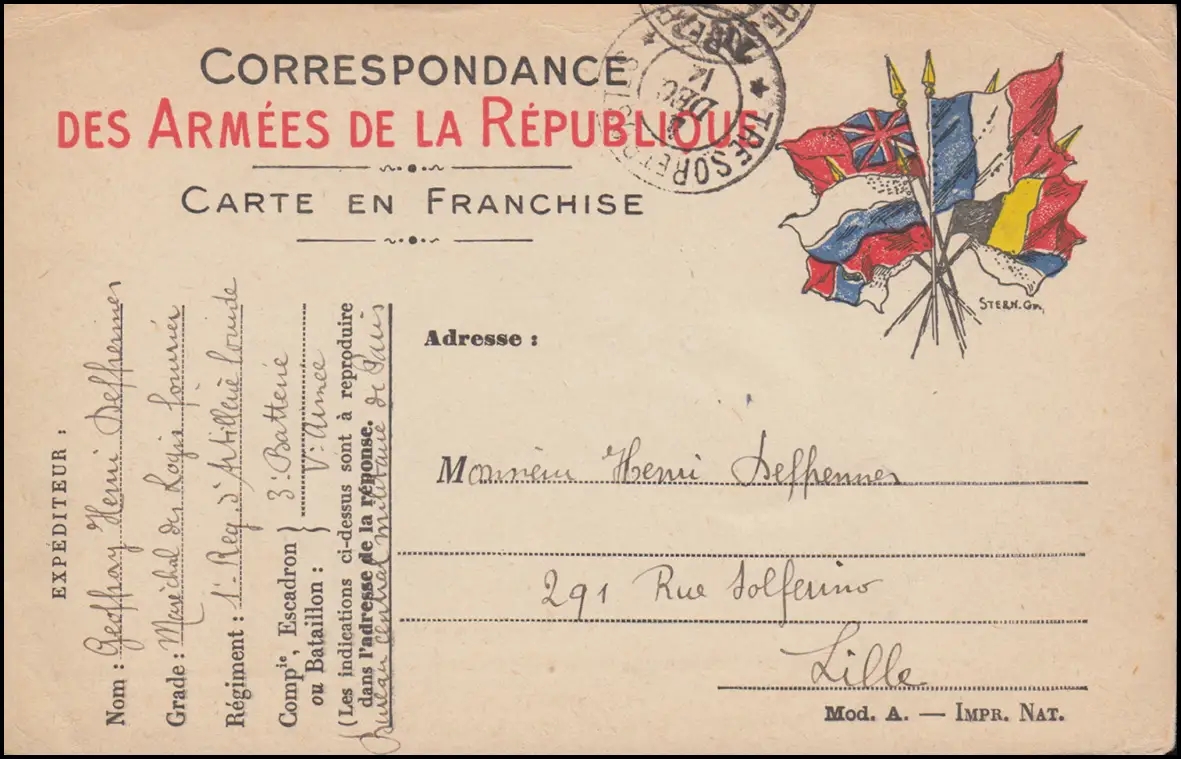 CORRESPONDANCE
DES ARMÉES DE LA RÉPUBLIQUE
CARTE EN FRANCHISE
TRESOR ET
DEC
STERN. Gr.
EXPÉDITEUR :
Nom : Geoffray Henri Deffrennes
Grade : Maréchal des Logis fourrier
Régiment : 1r Reg. d'Artillerie lourde
Compie, Escadron } 3e Batterie
ou Bataillon : } Ve Armée
(Les indications ci-dessus sont à reproduire
dans l'adresse de la réponse.
Bureau central militaire de Paris
Adresse :
Monsieur Henri Deffrennes
291 Rue Solferino
Lille
Mod. A. — IMPR. NAT.